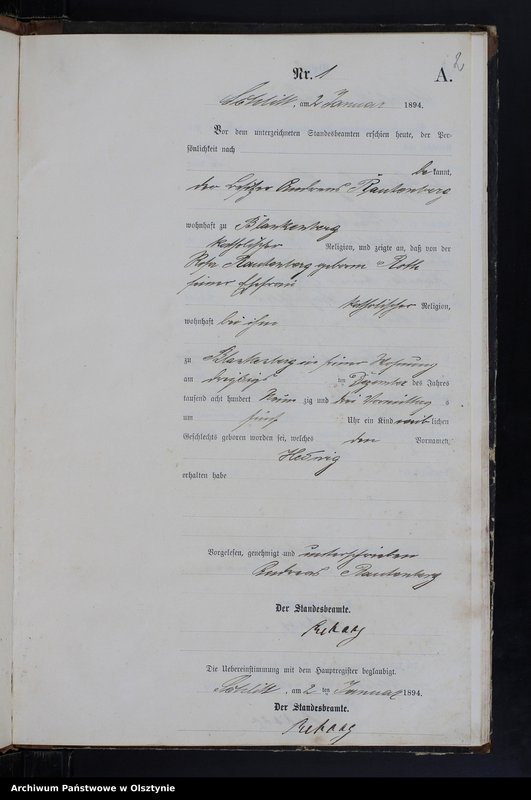 2
Nr. 1
A.
Schlitt, am 2 Januar 1894.
Vor dem unterzeichneten Standesbeamten erschien heute, der Per-
sönlichkeit nach
be kannt,
der Besitzer Andreas Rautenberg
wohnhaft zu Blankenberg
katholischer Religion, und zeigte an, daß von der
Rosa Rautenberg geboren Roth
seiner Ehefrau
katholischer Religion,
wohnhaft bei ihm
zu Blankenberg in seiner Wohnung
am dreißigs ten Dezember des Jahres
tausend acht hundert Neun zig und drei Vormittag s
um fünf Uhr ein Kind weib lichen
Geschlechts geboren worden sei, welches den Vornamen
Hedwig
erhalten habe
Vorgelesen, genehmigt und unterschrieben
Andreas Rautenberg
Der Standesbeamte.
Die Uebereinstimmung mit dem Hauptregister beglaubigt.
Schlitt, am 2 ten Januar 1894.
Der Standesbeamte.
Archiwum Państwowe w Olsztynie